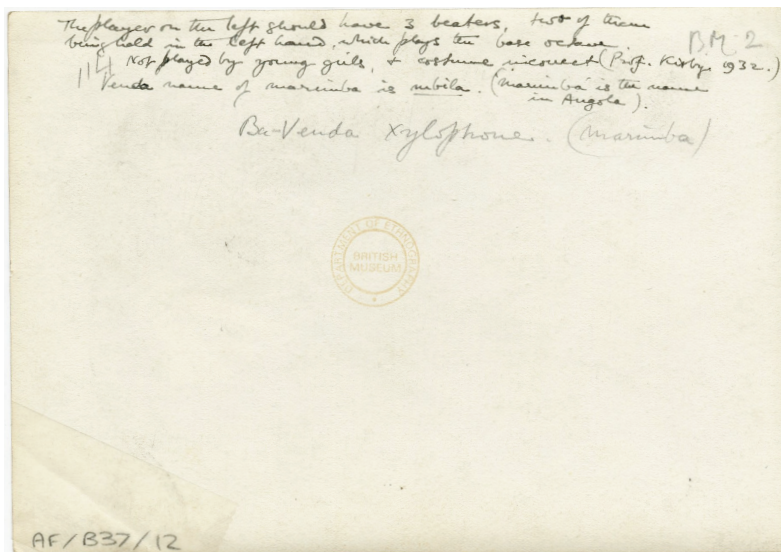 The player on the left should have 3 beaters, two of them
being held in the left hand, which plays the base octave.
BM 2
114
Not played by young girls, & costume incorrect (Prof. Kirby. 1932.)
Venda name of marimba is mbila. ('marimba' is the name
in Angola).
Ba-Venda Xylophone. (marimba)
DEPARTMENT OF ETHNOGRAPHY
BRITISH
MUSEUM
AF/B37/12